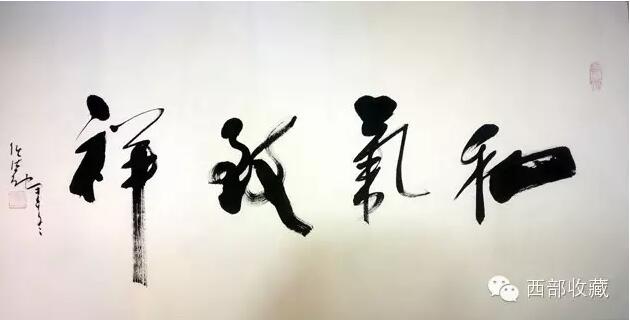 和氣致祥
西部收藏